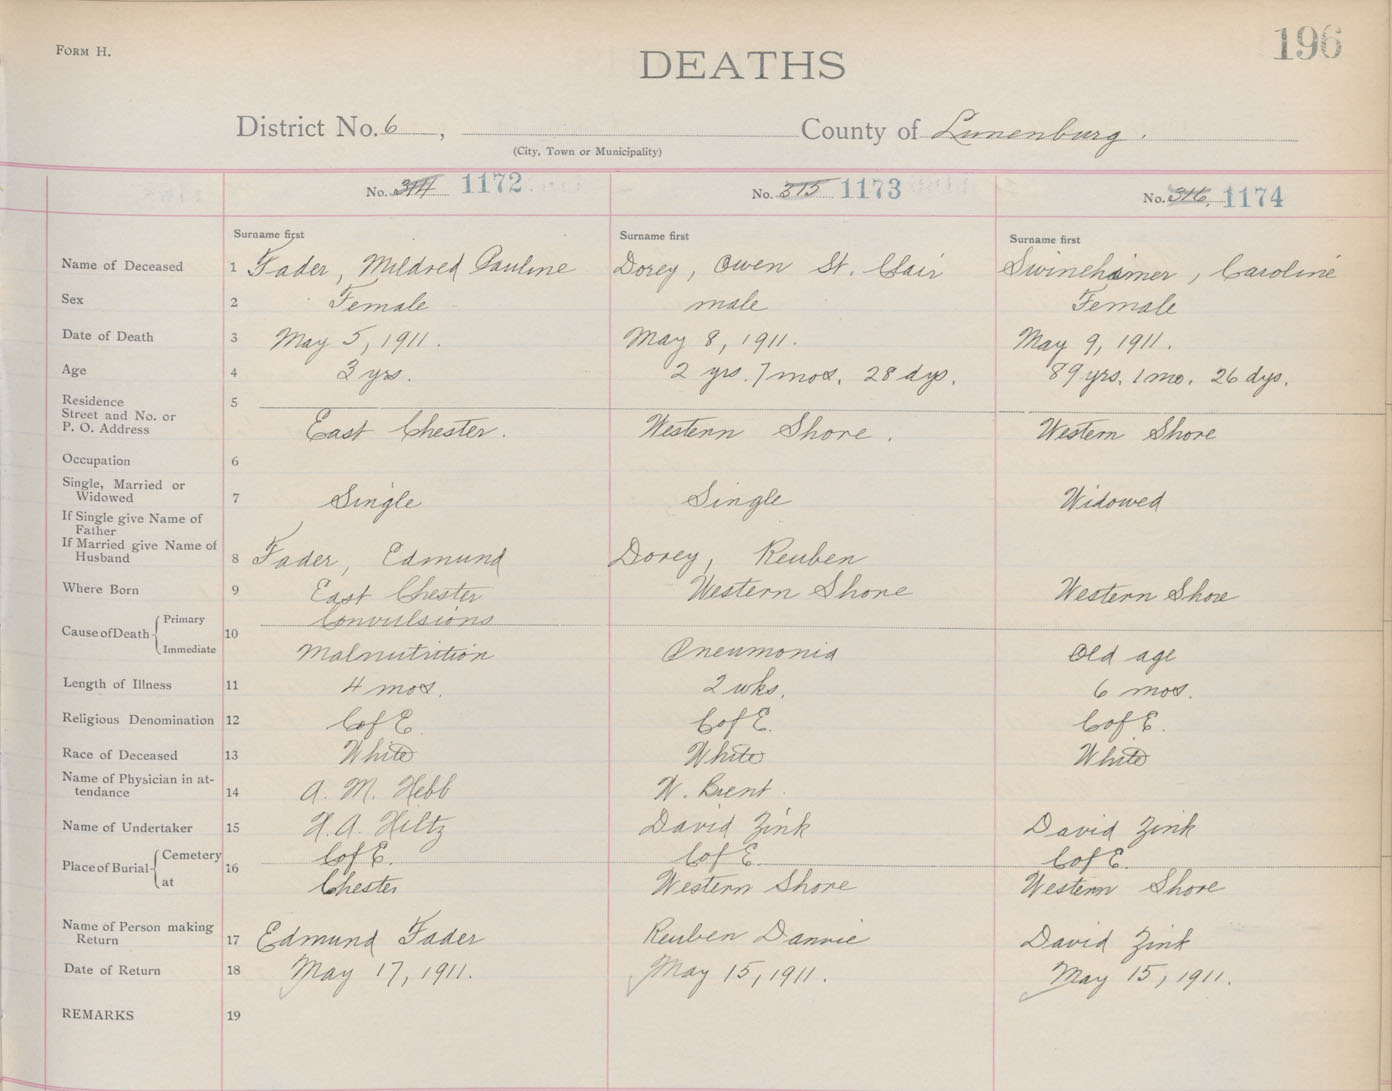 FORM H.
196
DEATHS
District No. 6, County of Lunenburg.
(City, Town or Municipality)
No. 314 1172 No. 315 1173 No. 316. 1174
Surname first Surname first Surname first
Name of Deceased 1 Fader, Mildred Pauline Dorey, Owen St. Clair Swinehaimer, Caroline
Sex 2 Female male Female
Date of Death 3 May 5, 1911. May 8, 1911. May 9, 1911.
Age 4 3 yrs. 2 yrs. 7 mos. 28 dys. 89 yrs. 1 mo. 26 dys.
Residence 5
Street and No. or
P. O. Address East Chester. Western Shore. Western Shore
Occupation 6
Single, Married or
Widowed 7 Single Single Widowed
If Single give Name of
Father
If Married give Name of
Husband 8 Fader, Edmund Dorey, Reuben
Where Born 9 East Chester Western Shore Western Shore
Cause of Death 10 Primary Convulsions
Immediate Malnutrition Pneumonia Old age
Length of Illness 11 4 mos. 2 wks. 6 mos.
Religious Denomination 12 C of E. C of E. C of E.
Race of Deceased 13 White White White
Name of Physician in at-
tendance 14 A. M. Hebb W. Brent.
Name of Undertaker 15 H. A. Hiltz David Zink David Zink
Place of Burial 16 Cemetery C of E. C of E. C of E.
at Chester Western Shore Western Shore
Name of Person making
Return 17 Edmund Fader Reuben Dannie David Zink
Date of Return 18 May 17, 1911. May 15, 1911. May 15, 1911.
REMARKS 19